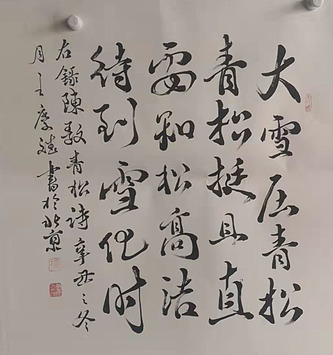 大雪压青松
青松挺且直
要知松高洁
待到雪化时
右錄陳毅青松诗辛丑之冬
月王書於北京